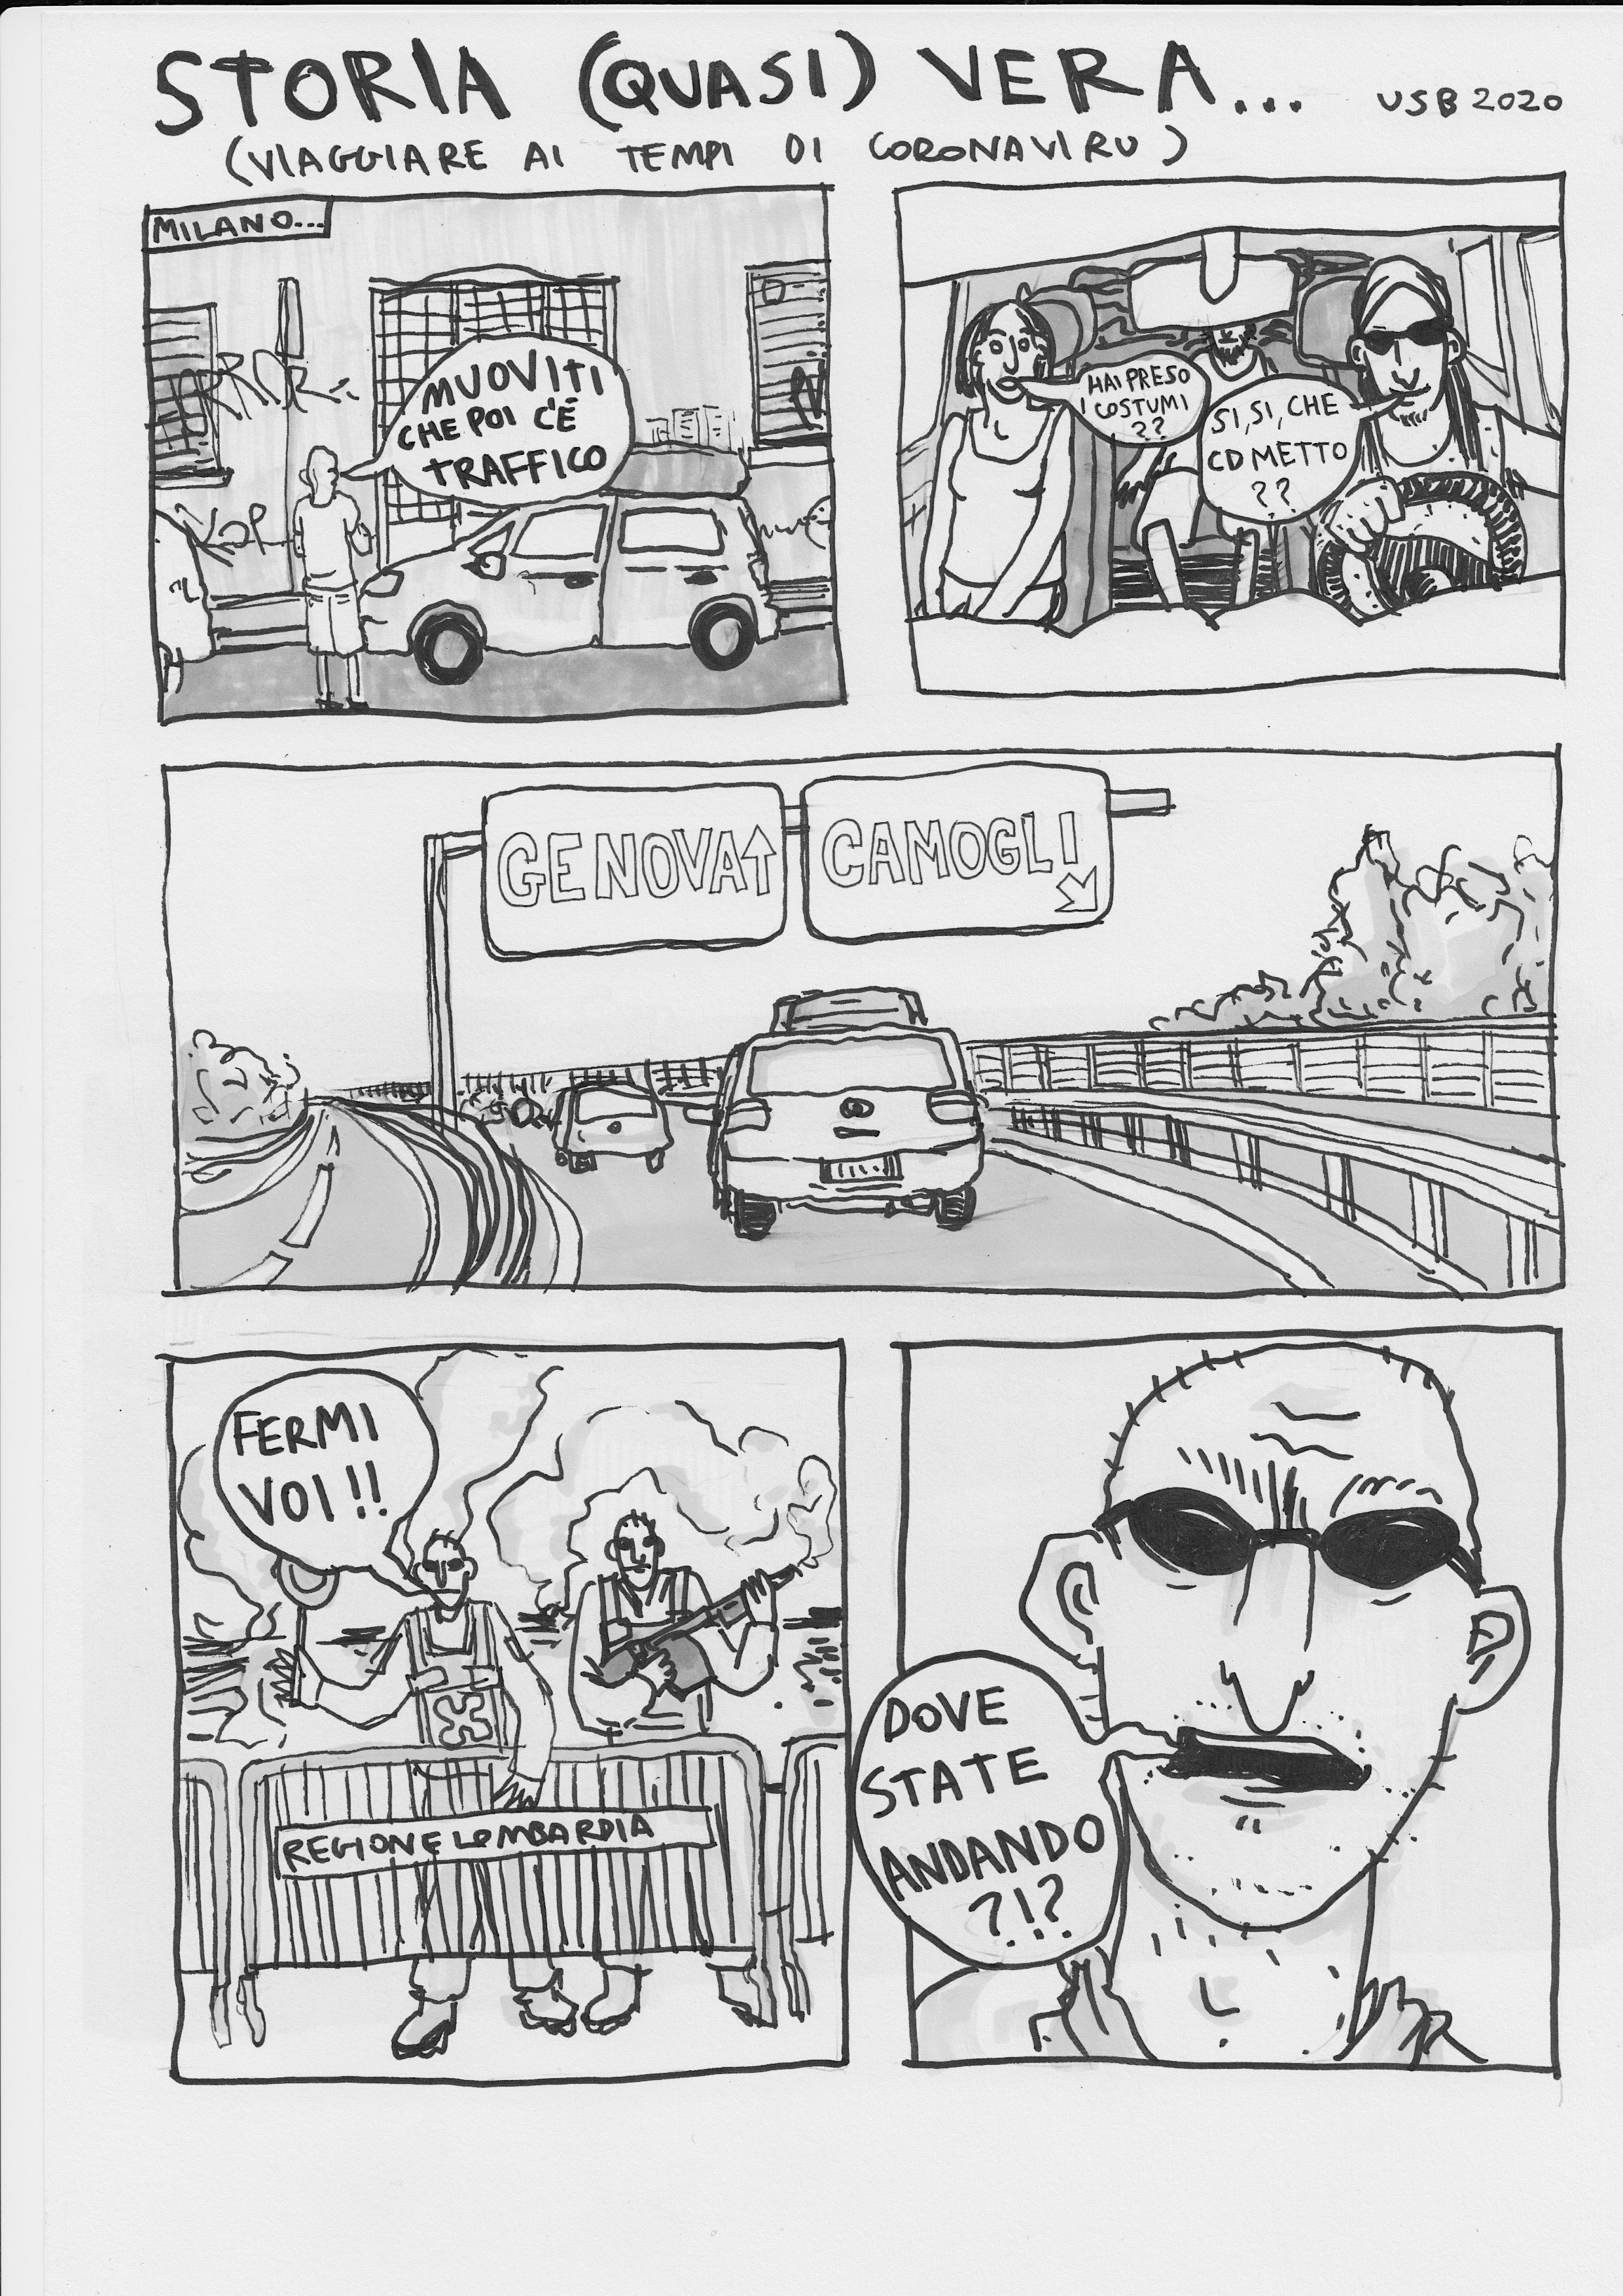 STORIA (QUASI) VERA...
USB 2020
(VIAGGIARE AI TEMPI DI CORONAVIRU)
MILANO...
MUOVITI
CHE POI C'È
TRAFFICO
HAI PRESO
I COSTUMI
??
SI, SI, CHE
CD METTO
??
GENOVA↑
CAMOGLI
↘
FERMI
VOI!!
REGIONE LOMBARDIA
DOVE
STATE
ANDANDO
?!?